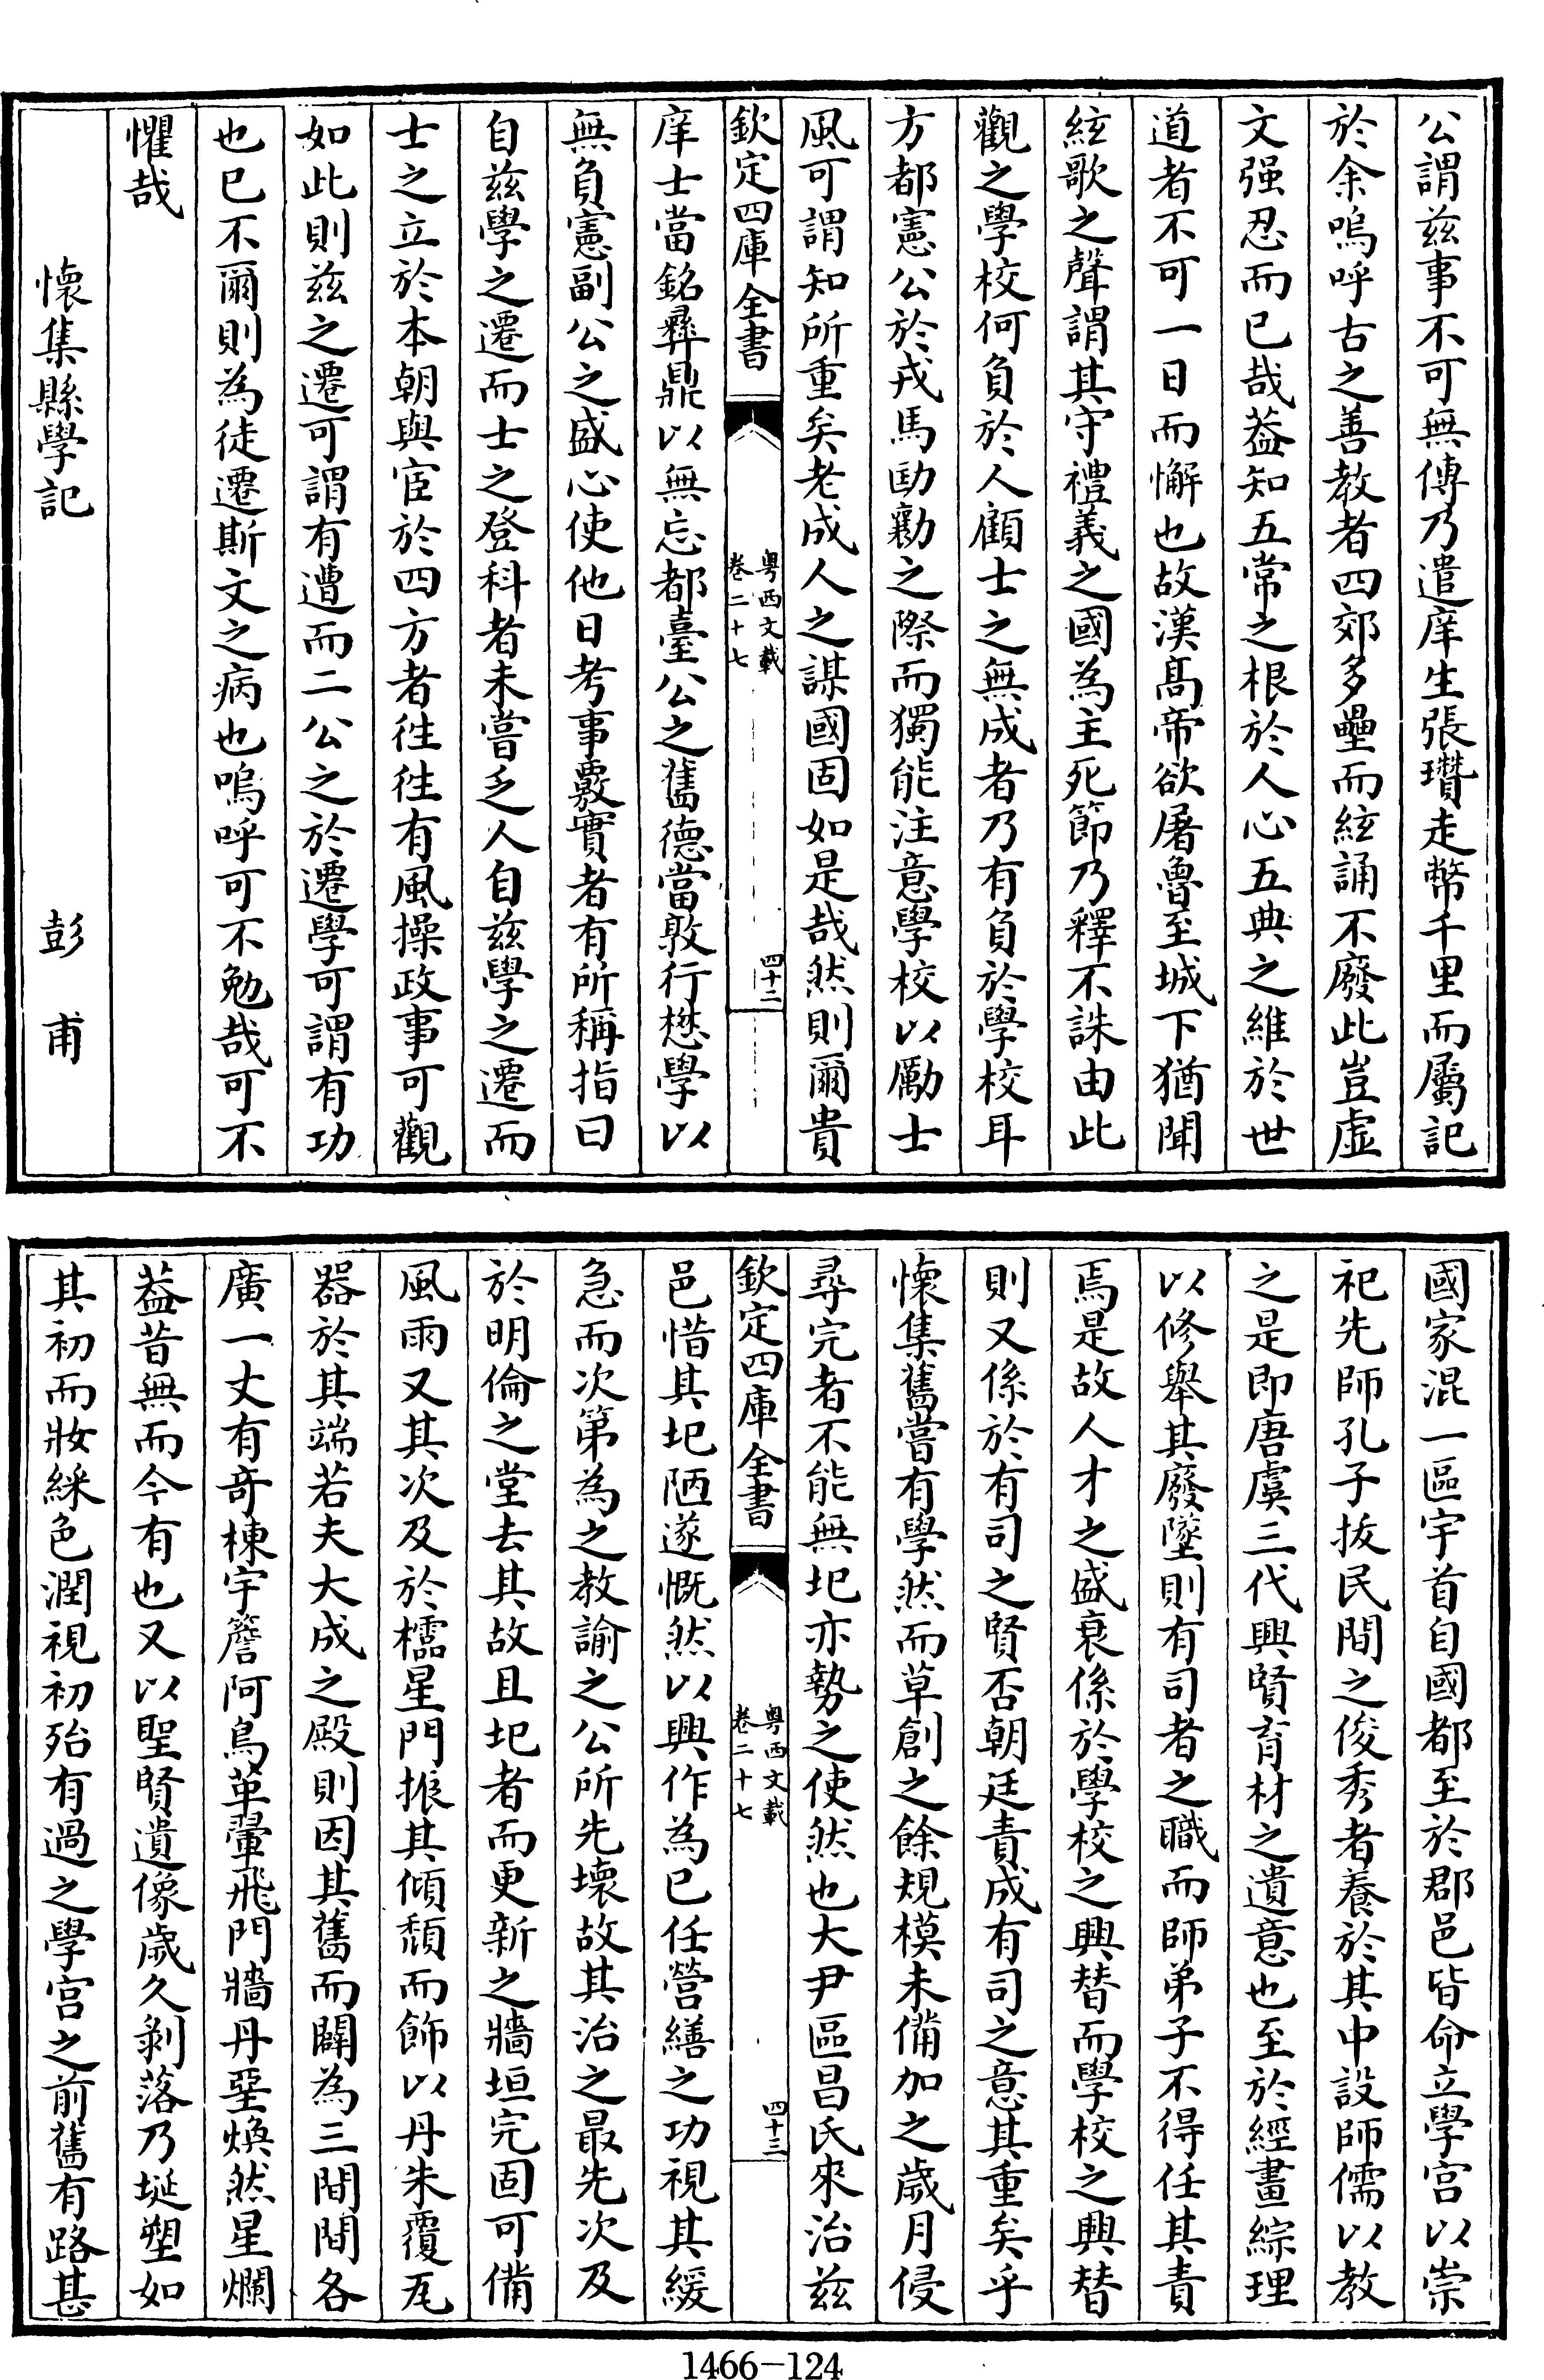 公謂兹事不可無傳乃遣庠生張瓚走幣千里而屬記
於余嗚呼古之善教者四郊多壘而絃誦不廢此豈虚
文强忍而已哉葢知五常之根於人心五典之維於世
道者不可一日而懈也故漢髙帝欲屠魯至城下猶聞
絃歌之聲謂其守禮義之國為主死節乃釋不誅由此
觀之學校何負於人顧士之無成者乃有負於學校耳
方都憲公於戎馬劻勷之際而獨能注意學校以勵士
風可謂知所重矣老成人之謀國固如是哉然則爾貴
欽定四庫全書
粤西文載
卷二十七
四十二
庠士當銘彞鼎以無忘都臺公之舊德當敦行懋學以
無負憲副公之盛心使他日考事覈實者有所稱指曰
自兹學之遷而士之登科者未嘗乏人自兹學之遷而
士之立於本朝與宦於四方者徃徃有風操政事可觀
如此則兹之遷可謂有遭而二公之於遷學可謂有功
也已不爾則為徒遷斯文之病也嗚呼可不勉哉可不
懼哉
懷集縣學記 彭甫
國家混一區宇首自國都至於郡邑皆命立學宫以崇
祀先師孔子拔民間之俊秀者養於其中設師儒以教
之是即唐虞三代興賢育材之遺意也至於經畫綜理
以修舉其廢墜則有司者之職而師弟子不得任其責
焉是故人才之盛衰係於學校之興替而學校之興替
則又係於有司之賢否朝廷責成有司之意其重矣乎
懷集舊嘗有學然而草創之餘規模未備加之歲月侵
尋完者不能無圮亦勢之使然也大尹區昌氏來治兹
欽定四庫全書
粤西文載
卷二十七
四十三
邑惜其圮陋遂慨然以興作為已任營繕之功視其緩
急而次第為之教諭之公所先壞故其治之最先次及
於明倫之堂去其故且圮者而更新之牆垣完固可備
風雨又其次及於櫺星門振其傾頽而飾以丹朱覆瓦
器於其端若夫大成之殿則因其舊而闢為三間間各
廣一丈有竒棟宇簷阿鳥革翬飛門牆丹堊煥然星爛
葢昔無而今有也又以聖賢遺像歲久剥落乃埏塑如
其初而妝綵色潤視初殆有過之學宫之前舊有路甚
1466-124